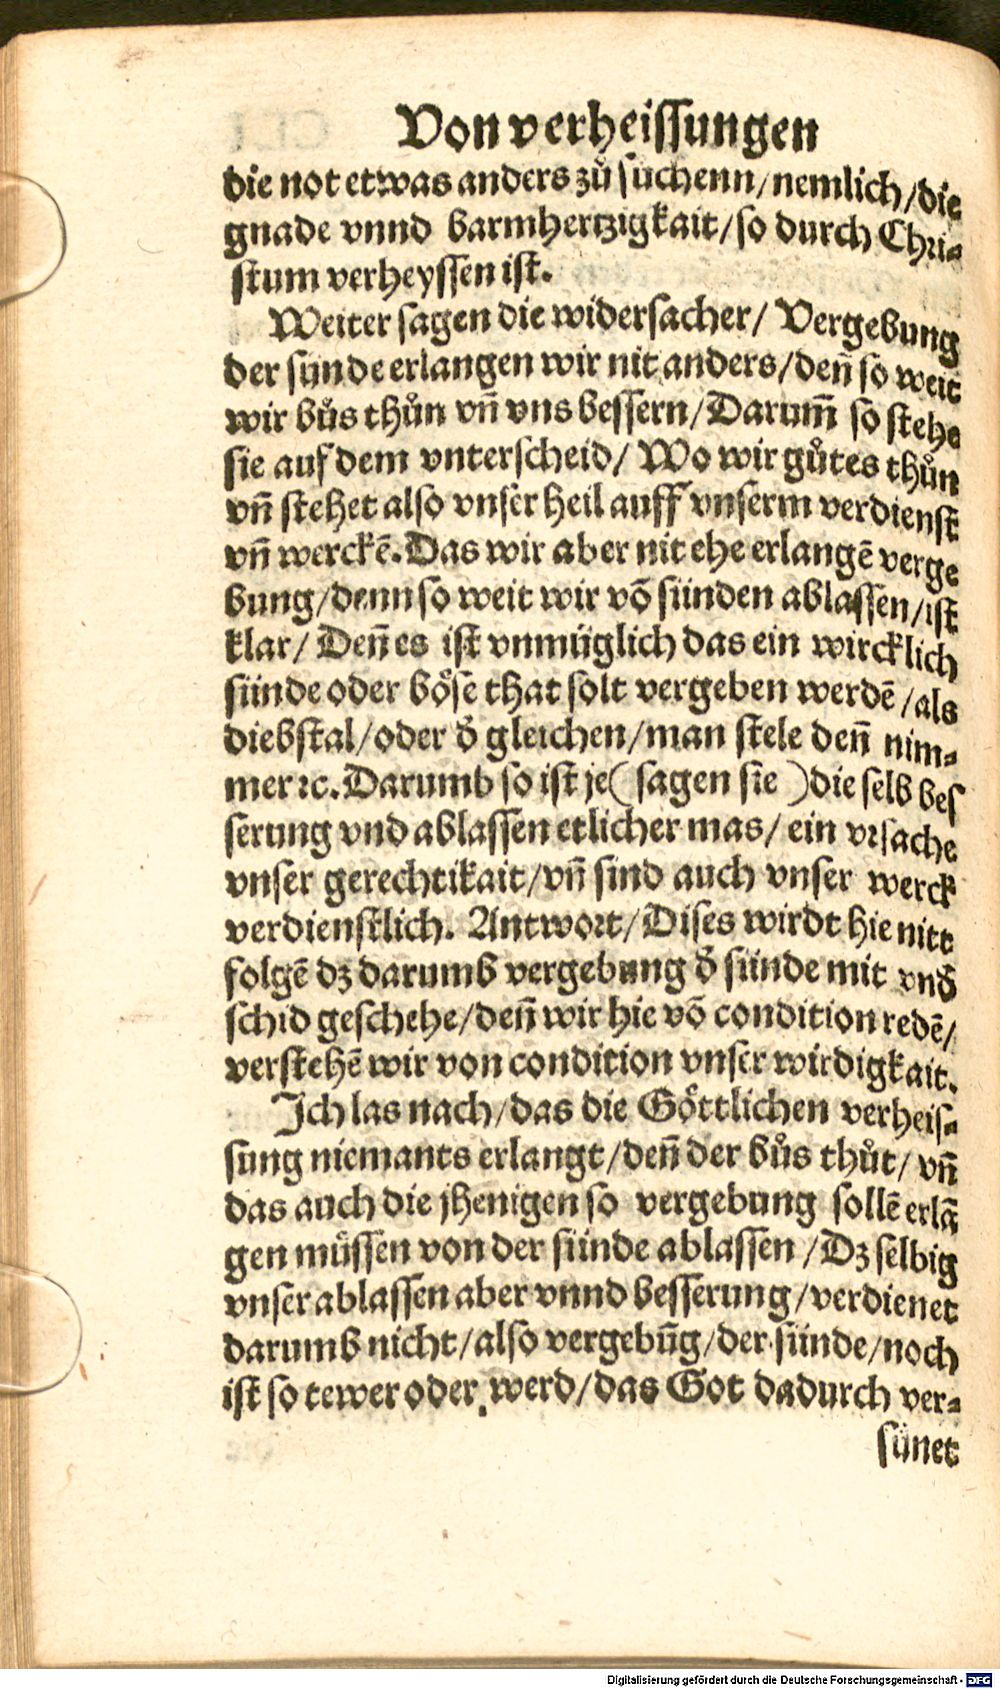 Von verheissungen
die not etwas anders zů suchenn/nemlich/die
gnade vnnd barmhertzigkait/so durch Chri-
stum verheyssen ist.
Weiter sagen die widersacher/ Vergebung
der sünde erlangen wir nit anders/deñ so weit
wir bůs thůn vñ vns bessern/Darum̃ so stehe
sie auf dem vnterscheid/ Wo wir gůtes thůn
vñ stehet also vnser heil auff vnserm verdienst
vñ werckẽ. Das wir aber nit ehe erlangẽ verge
bung/denn so weit wir võ sünden ablassen/ist
klar/ Deñ es ist vnmüglich das ein wircklich
sünde oder böse that solt vergeben werdẽ/als
diebstal/oder d̃ gleichen/man stele deñ nim-
mer ꝛc. Darumb so ist je( sagen sie )die selb bes
serung vnd ablassen etlicher mas/ ein vrsache
vnser gerechtikait/vñ sind auch vnser werck
verdienstlich. Antwort/Dises wirdt hie nitt
folgẽ dz darumb vergebung d̃ sünde mit vnd̃
schid geschehe/deñ wir hie võ condition redẽ/
verstehẽ wir von condition vnser wirdigkait.
Ich las nach/das die Göttlichen verheis-
sung niemants erlangt/deñ der bůs thůt/ vñ
das auch die jhenigen so vergebung sollẽ erlã
gen müssen von der sünde ablassen /Dz selbig
vnser ablassen aber vnnd besserung/verdienet
darumb nicht/also vergebũg/der sünde/noch
ist so tewer oder werd/das Got dadurch ver-
sünet
Digitalisierung gefördert durch die Deutsche Forschungsgemeinschaft - DFG